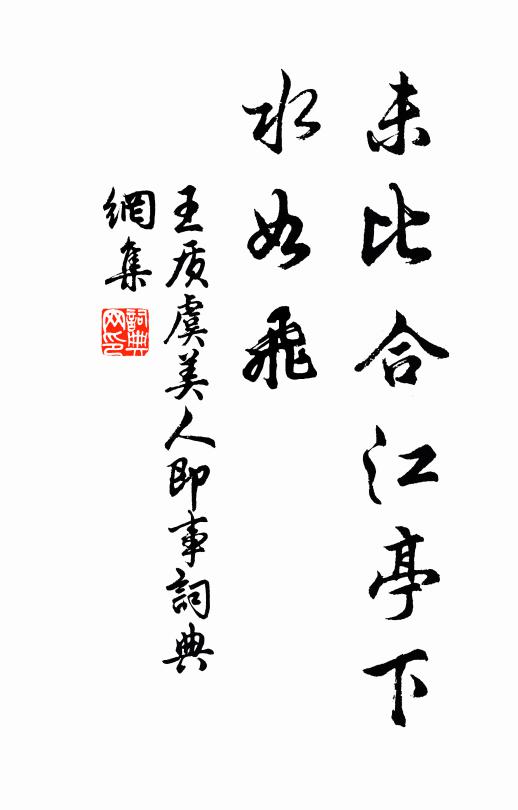 未比合江亭下
水如飛
王质虞美人即事詞典
網集
詞典
网印